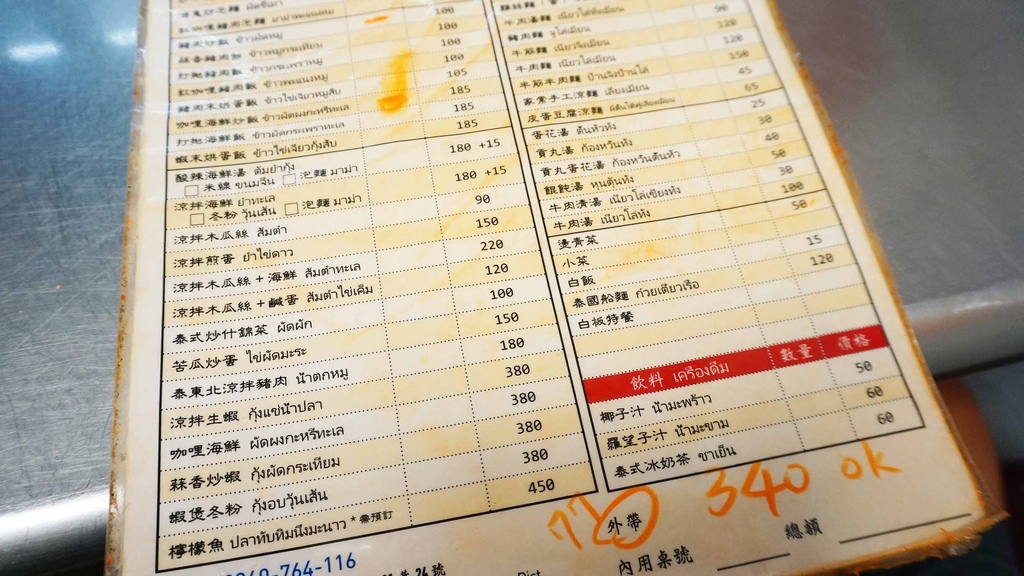 紅咖哩豬肉泡麵 มาม่าพะแนงหมู 100
豬肉炒飯 ข้าวผัดหมู 100
蒜香豬肉飯 ข้าวหมูกระเทียม 100
打拋豬肉飯 ข้าวกระเพราหมู 100
紅咖哩豬肉飯 ข้าวพะแนงหมู 100
豬肉末烘蛋飯 ข้าวไข่เจียวหมูสับ 105
咖哩海鮮炒飯 ข้าวผัดผงกะหรี่ทะเล 185
打拋海鮮飯 ข้าวผัดกระเพราทะเล 185
蝦米烘蛋飯 ข้าวไข่เจียวกุ้งสับ 185
酸辣海鮮湯 ต้มยำกุ้ง 180 +15
□ 米線 ขนมจีน □ 泡麵 มาม่า
涼拌海鮮 ยำทะเล 180 +15
□ 冬粉 วุ้นเส้น □ 泡麵 มาม่า
涼拌木瓜絲 ส้มตำ 90
涼拌煎蛋 ยำไข่ดาว 150
涼拌木瓜絲 + 海鮮 ส้มตำทะเล 220
涼拌木瓜絲 + 鹹蛋 ส้มตำไข่เค็ม 120
泰式炒什錦菜 ผัดผัก 100
苦瓜炒蛋 ไข่ผัดมะระ 150
泰東北涼拌豬肉 น้ำตกหมู 180
涼拌生蝦 กุ้งแช่น้ำปลา 380
咖哩海鮮 ผัดผงกะหรี่ทะเล 380
蒜香炒蝦 กุ้งผัดกระเทียม 380
蝦煲冬粉 กุ้งอบวุ้นเส้น 380
檸檬魚 ปลาทับทิมนึ่งมะนาว * 需預訂 450
豬肉麵 90
牛筋麵 120
牛肉麵 120
牛筋半肉麵 150
家常手工涼麵 45
皮蛋豆腐涼麵 65
蛋花湯 25
貢丸湯 30
貢丸蛋花湯 40
餛飩湯 50
牛肉清湯 30
牛肉湯 100
燙青菜 50
小菜
白飯 15
泰國船麵 ก๋วยเตี๋ยวเรือ 120
白板特餐
飲料 เครื่องดื่ม 數量 價格
椰子汁 น้ำมะพร้าว 50
羅望子汁 น้ำมะขาม 60
泰式冰奶茶 ชาเย็น 60
720 340 ok
外帶
內用桌號 總額
-764-116